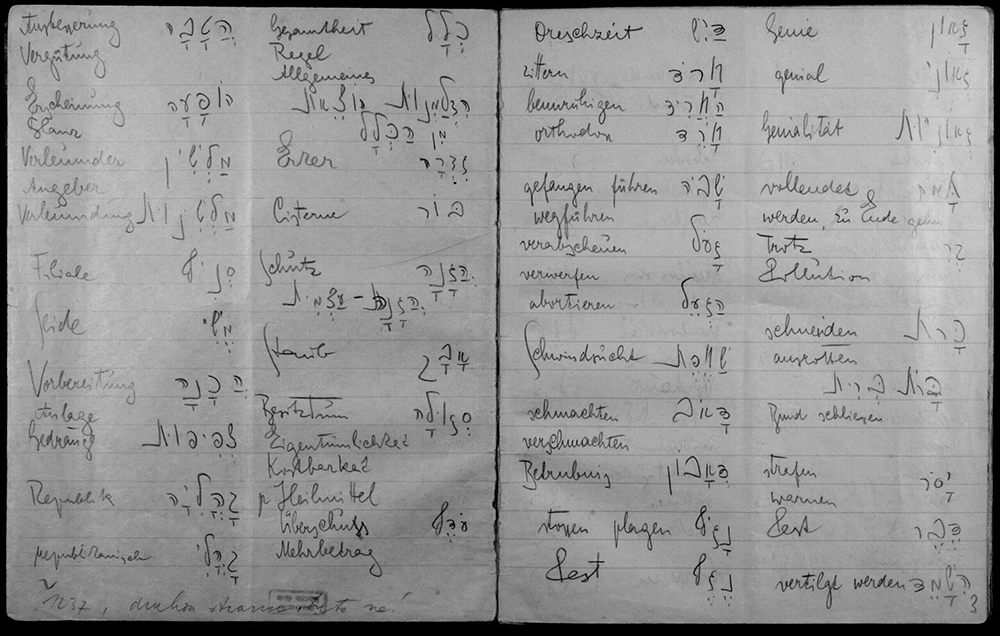 Ausbesserung הֲטָבָה
Vergütung
Erscheinung הוֹפָעָה
Glanz
Verleumder מַלְשִׁין
Angeber
Verleumdung מַלְשִׁינוּת
Filiale סְנִיף
Seide מֶשִׁי
Vorbereitung הֲכָנָה
Anlage
Gedränge צְפִיפוּת
Republik קְהִלִיָה
republikanisch קְהִלִי
Gesamtheit כְּלָל
Regel
Allgemeines
הִצְטַמְּנוּת הוֹצָאָת
מִן הַכְּלָל
Ezer
Cisterne בּוֹר
Schutz הֲגָנָה
הֲגָנָה - עַצְמִית
Staub אָבָק
Besitztum סְגוּלָה
Eigentümlichkeit
Kostbarkeit
Heilmittel
Überschuß עוֹדֶף
Mehrbetrag
Dreschzeit דַּיִשׁ
zittern חָרַד
beunruhigen הַחֲרִיד
orthodox חָרֵד
gefangen führen שָׁבָה
wegführen
verabscheuen גָּעַל
verwerfen
abortieren הַגְעֵל
Schwindsucht שַׁחֶפֶת
schmachten דָּאַב
verschmachten
Betrübnis דְּאָבוֹן
stoßen plagen נָגַף
Pest נֶגֶף
Genie גָּאוֹן
genial גְּאוֹנִי
Genialität גְּאוֹנִיּוּת
vollendet
werden, zu Ende gehn
Trotz
Pollution
schneiden כָּרַת
ausrotten
כָּרַת בְּרִית
Bund schliessen
strafen יָסַר
warnen
Pest דֶּבֶר
vertilgt werden הִשָּׁמֵד
3
1237,